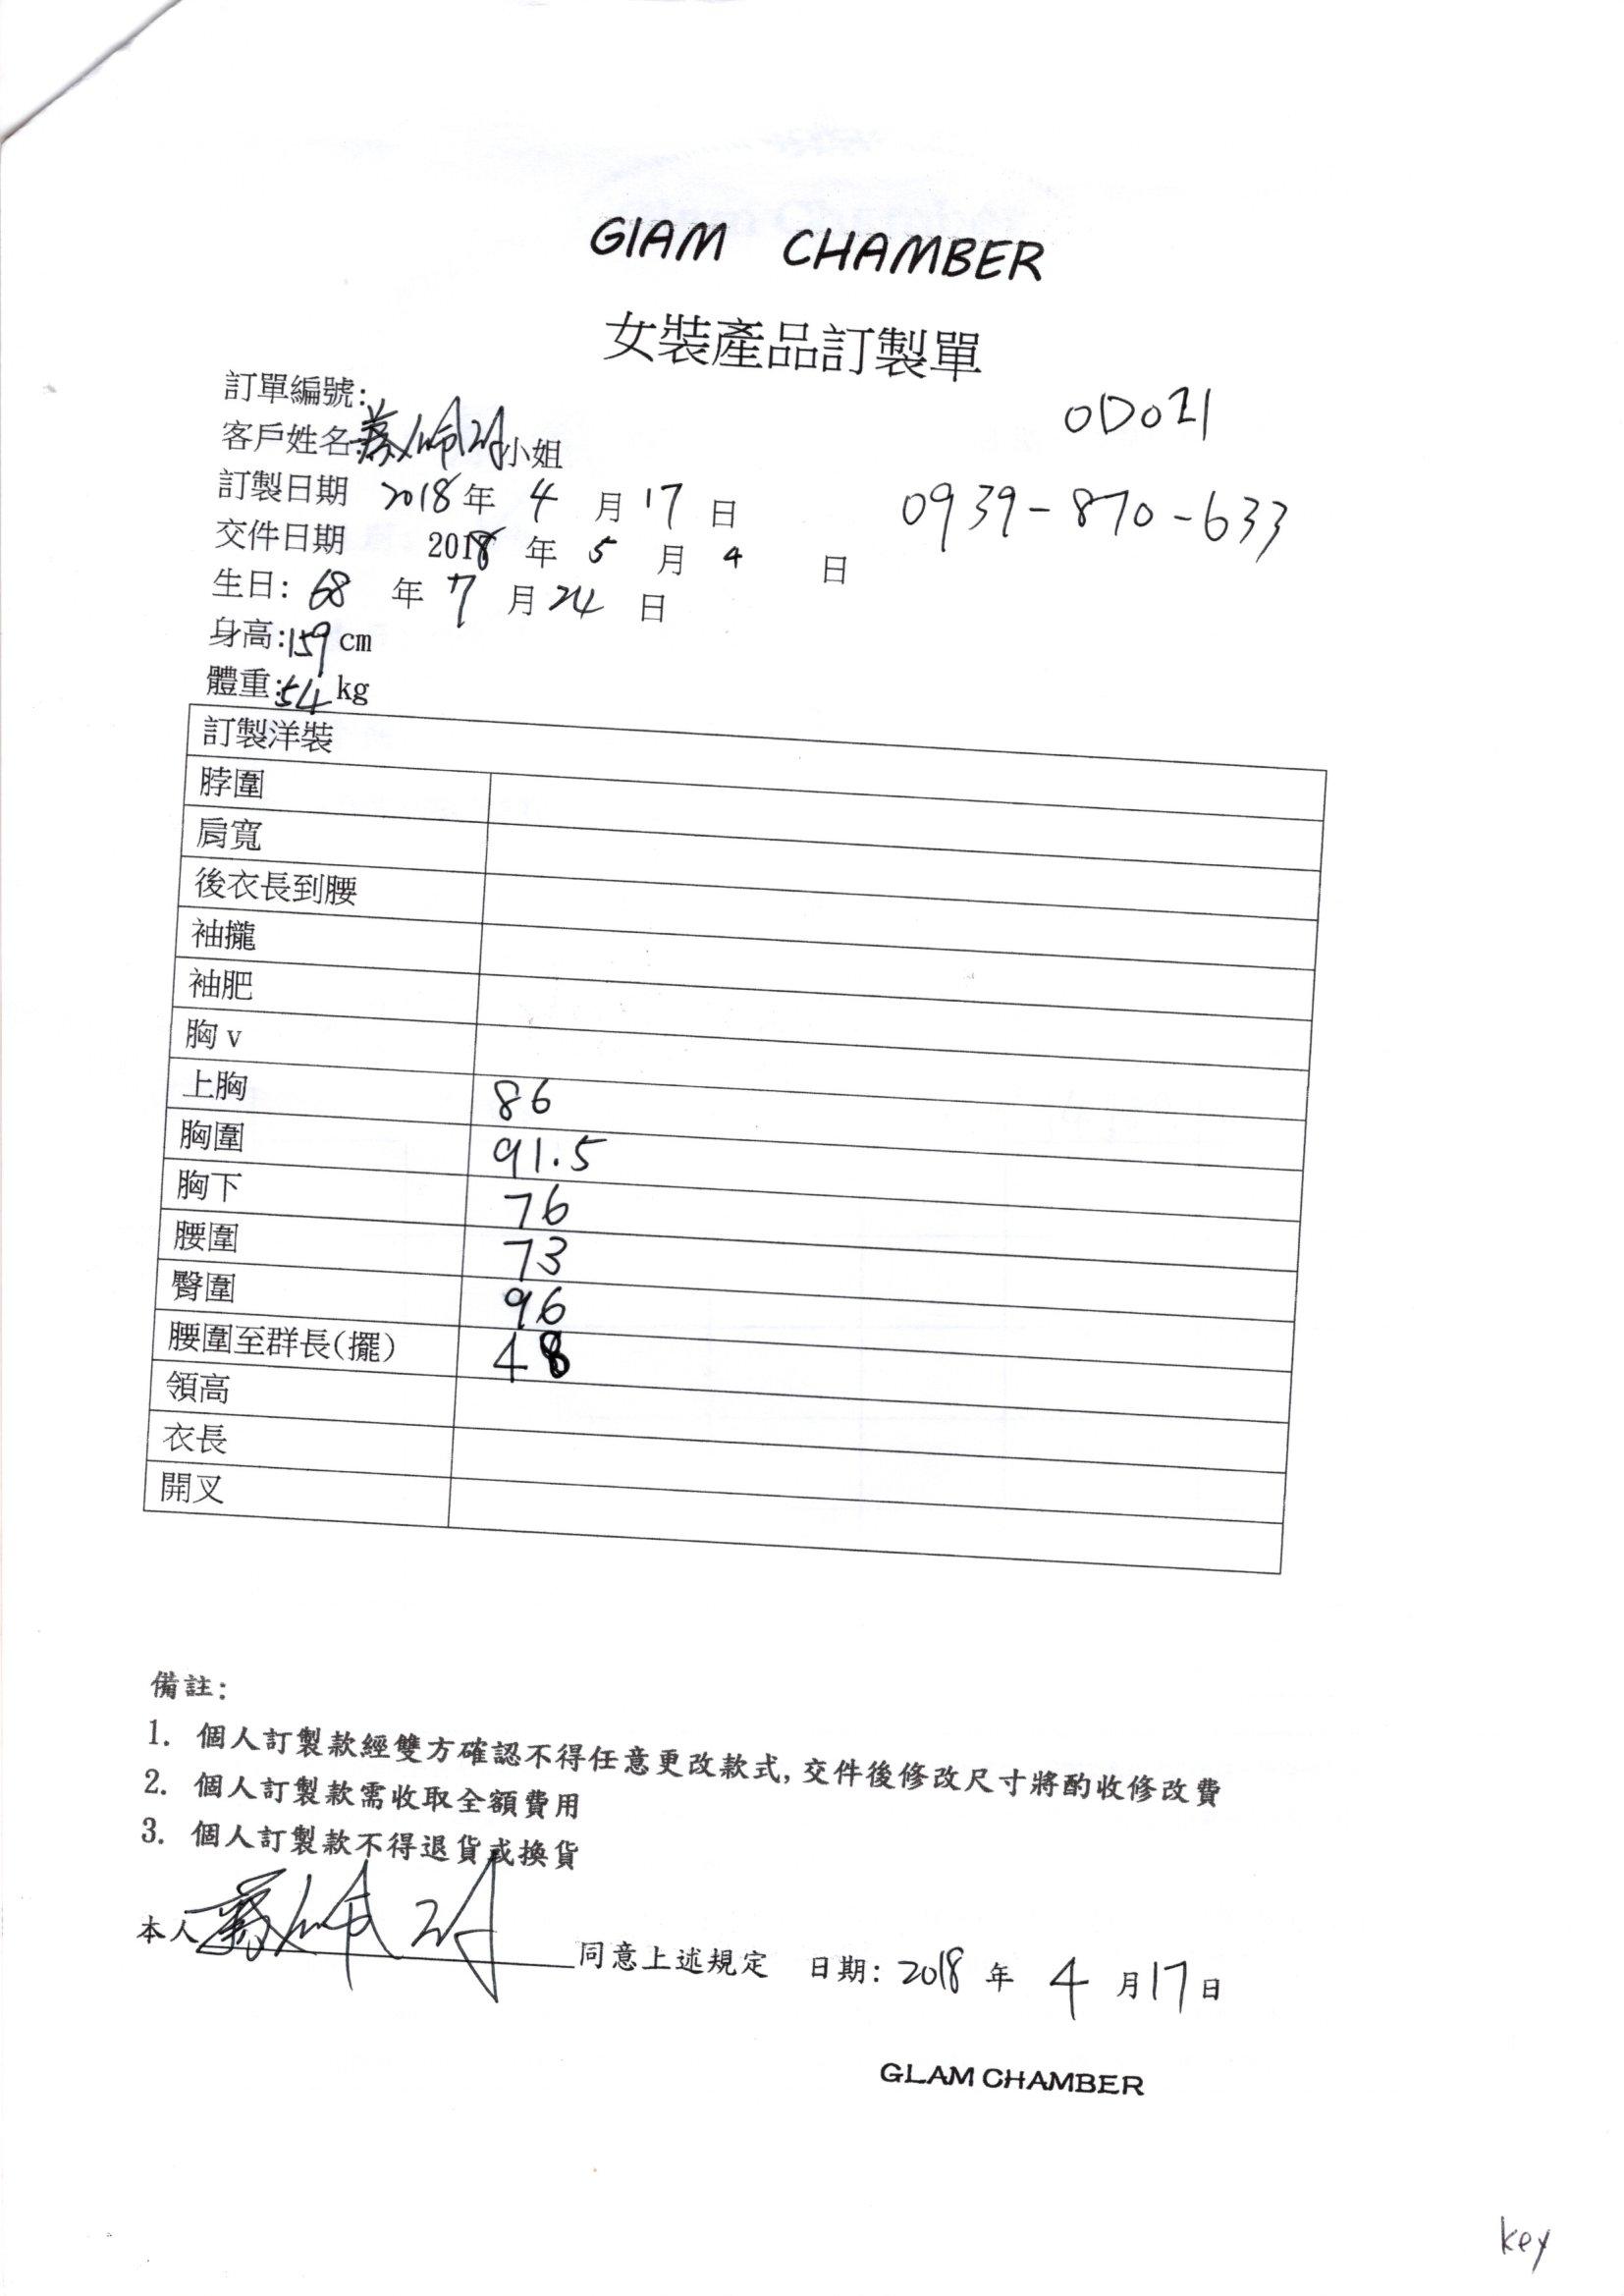 GIAM CHAMBER
女裝產品訂製單
訂單編號:
OD021
客戶姓名: 小姐
訂製日期 2018年 4 月 17 日
0939-870-633
交件日期 2018 年 5 月 4 日
生日: 68 年 7 月 24 日
身高:159cm
體重:54kg
訂製洋裝
脖圍
肩寬
後衣長到腰
袖攏
袖肥
胸 v
上胸 86
胸圍 91.5
胸下 76
腰圍 73
臀圍 96
腰圍至群長(擺) 48
領高
衣長
開叉
備註:
1. 個人訂製款經雙方確認不得任意更改款式,交件後修改尺寸將酌收修改費
2. 個人訂製款需收取全額費用
3. 個人訂製款不得退貨或換貨
本人 同意上述規定 日期: 2018 年 4 月 17 日
GLAM CHAMBER
key